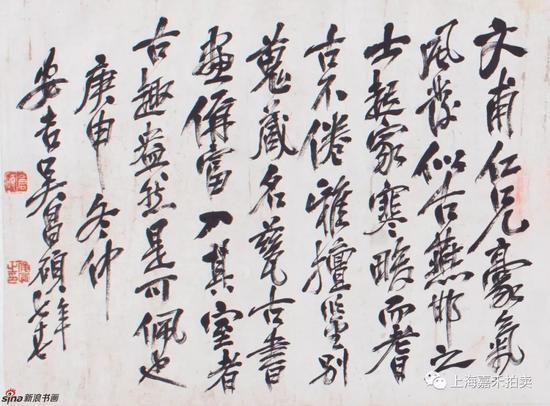 文甫仁兄豪氣
風發似古燕邯之
士起家寒畯而耆
古不倦雅擅鑒別
蒐藏名甆古書
畫侔富入其室者
古趣盎然是可佩也
庚申冬仲
安吉吳昌碩年七十七
sina新浪书画
上海嘉禾拍卖